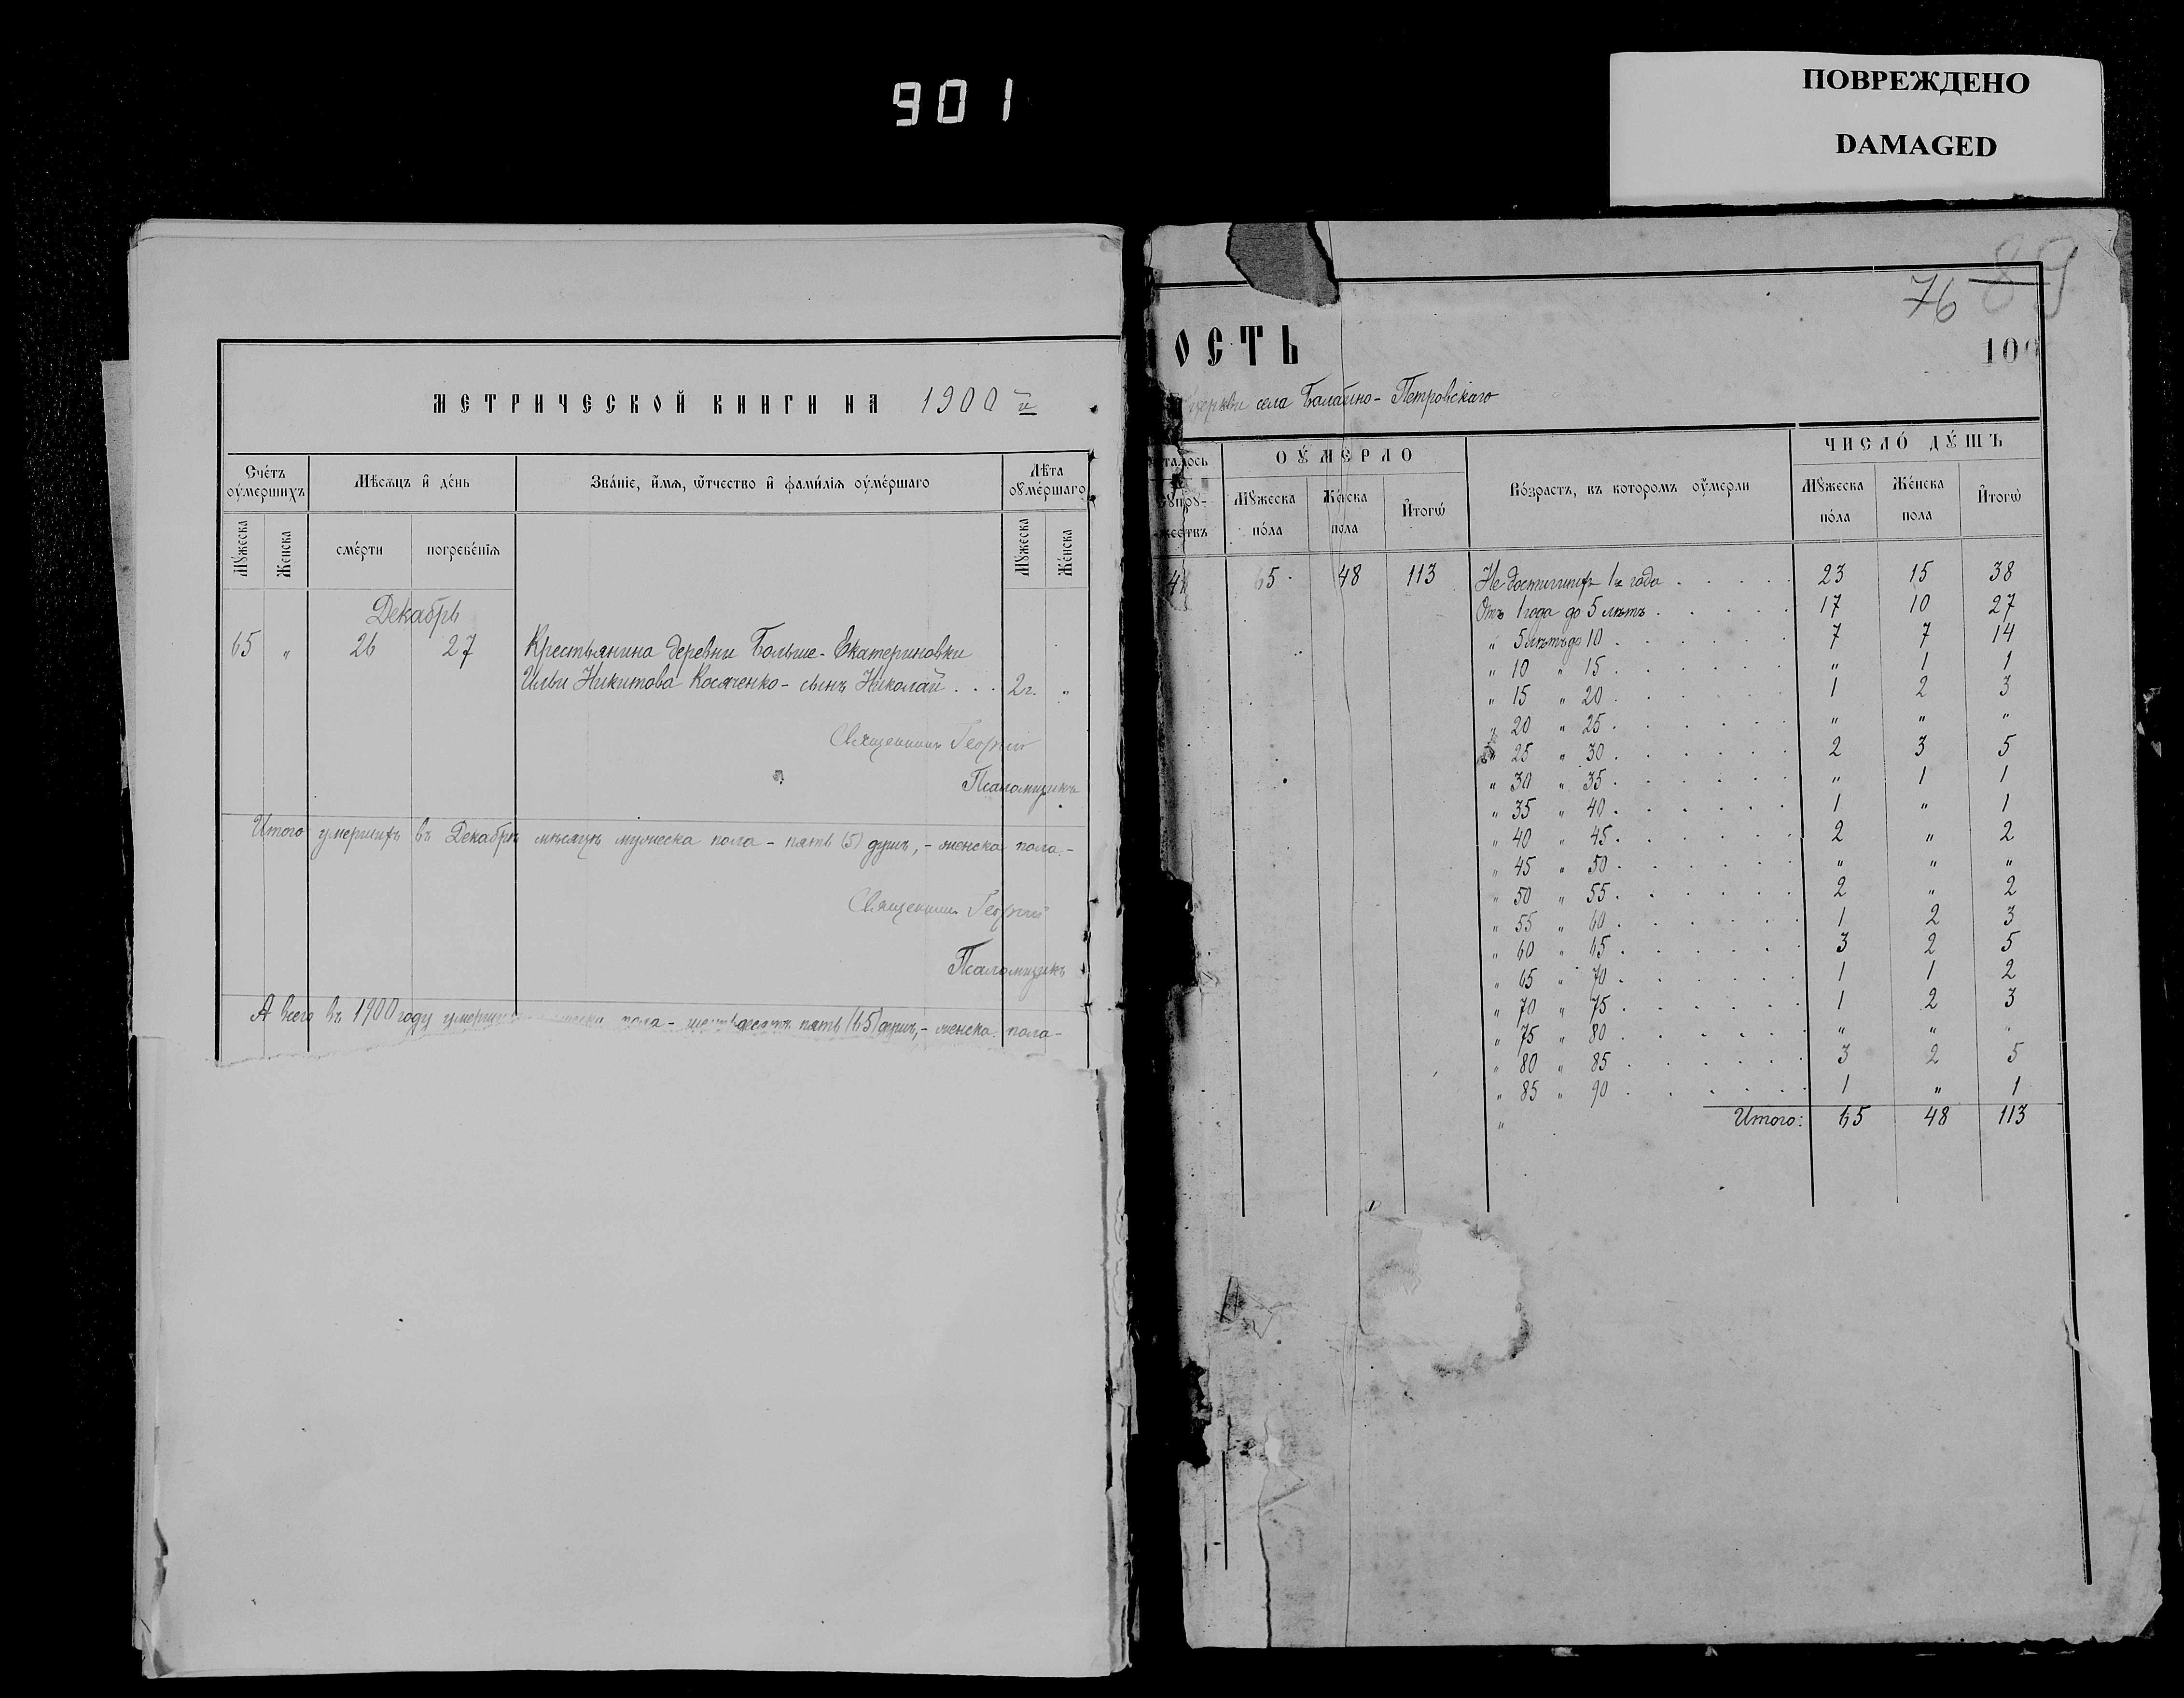 901
ПОВРЕЖДЕНО
DAMAGED
МЕТРИЧЕСКОЙ КНИГИ НА 1900 й
Сче́тъ оу҆ме́ршихъ
Мѣ́сѧцъ и҆ де́нь
Зва́нїе, и҆́мѧ, ѻ҆́тчество и҆ фами́лїѧ оу҆ме́ршагѡ
Лѣ́та оу҆ме́ршагѡ
Мꙋ́жеска
Же́нска
сме́рти
погребе́нїѧ
Мꙋ́жеска
Же́нска
Декабрь
65 " 26 27 Крестьянина деревни Больше-Екатериновки
Ильи Никитова Косяченко - сынъ Николай . . . 2 г. "
Священникъ Георгій
Псаломщикъ
Итого умершихъ въ Декабрѣ мѣсяцѣ мужеска пола - пять (5) душъ, - женска пола -
Священникъ Георгій
Псаломщикъ
А всего въ 1900 году умерши пола - пять (65) душъ, - женска пола -
76 89
ОСТЬ
100
церкви села Балабино-Петровскаго
талось
сꙋпрꙋ-
жествъ
ОУ҆́МЕРЛО
ЧИСЛО́ ДꙊ́ШЪ
Мꙋ́жеска по́ла
Же́нска пола
И҆тогѡ̀
Во́зрастъ, въ которомъ оу҆́мерли
Мꙋ́жеска по́ла
Же́нска пола
И҆тогѡ̀
65 48 113 Не достигшихъ 1го года . . . . . 23 15 38
Отъ 1 года до 5 лѣтъ . . . . . 17 10 27
" 5 лѣтъ до 10 . . . . . . 7 7 14
" 10 " 15 . . . . . . " 1 1
" 15 " 20 . . . . . . 1 2 3
" 20 " 25 . . . . . . " " "
" 25 " 30 . . . . . . 2 3 5
" 30 " 35 . . . . . . " 1 1
" 35 " 40 . . . . . . 1 " 1
" 40 " 45 . . . . . . 2 " 2
" 45 " 50 . . . . . . " " "
" 50 " 55 . . . . . . 2 " 2
" 55 " 60 . . . . . . 1 2 3
" 60 " 65 . . . . . . 3 2 5
" 65 " 70 . . . . . . 1 1 2
" 70 " 75 . . . . . . 1 2 3
" 75 " 80 . . . . . . " " "
" 80 " 85 . . . . . . 3 2 5
" 85 " 90 . . . . . . 1 " 1
" Итого: 65 48 113